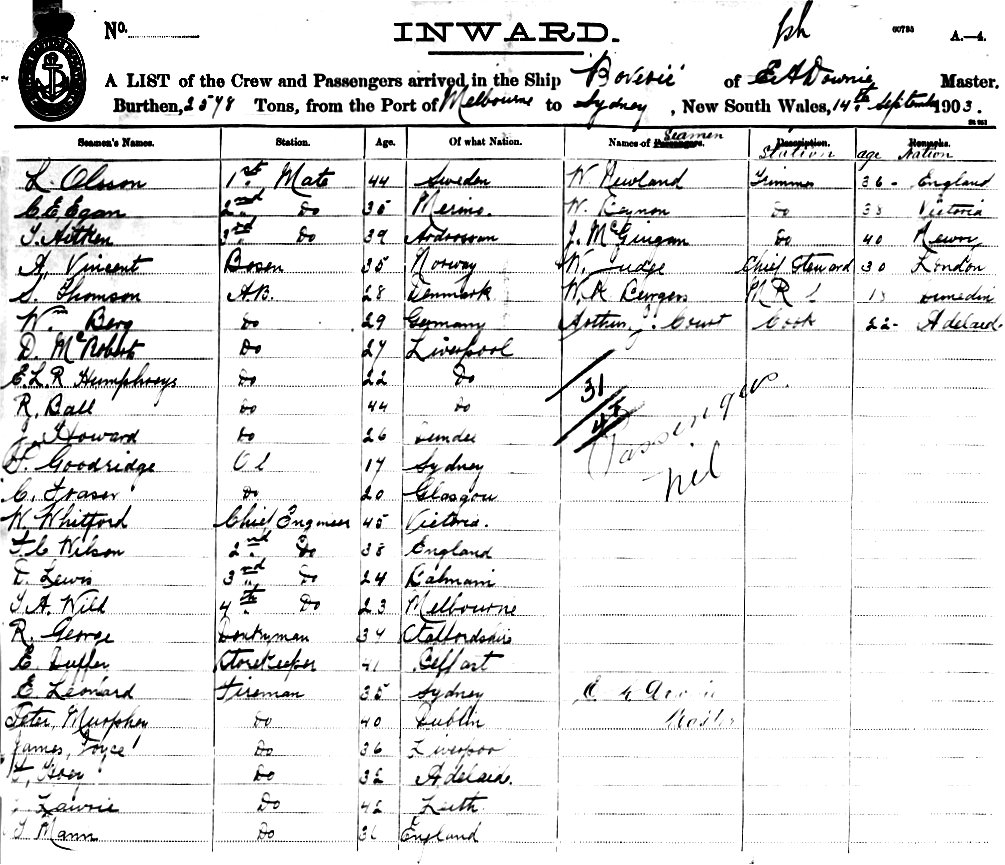 No.
INWARD.
A.—4.
A LIST of the Crew and Passengers arrived in the Ship "Boveric" of E A Downie, Master.
Burthen, 2578 Tons, from the Port of Melbourne to Sydney, New South Wales, 14th September 1903.
Seamen's Names. Station. Age. Of what Nation. Names of Passengers. Seamen Description. Station age Remarks. Nation
L. Olsson 1st Mate 44 Sweden W Newland Trimmer 36 England
C E Egan 2nd Do 35 Merino. W. Eynon Do 38 Victoria
T. Aitken 3rd Do 39 Ardrossan J. McGuigan Do 40 Newry
A. Vincent Bosen 35 Norway W. Judge Chief Steward 30 London
S. Thomson A.B. 28 Denmark W. R Dunedin
Wm Berg Do 29 Germany Arthur J. Court Cook 22 Adelaide
D. McRobert Do 27 Liverpool
E. L. R Humphreys Do 22 Do
R. Ball Do 44 Do
J. Howard Do 26 Dundee
Goodridge 17 Sydney
C. Fraser Do 20 Glasgow
W. Whitford Chief Engineer 45 Victoria.
T. C Wilson 2nd Do 38 England
D. Lewis 3rd Do 24 Balmain
T. A. Wild 4th Do 23 Melbourne
R. George Donkyman 34 Staffordshire
E Duffer Storekeeper 41 Belfast
E Leonard Fireman 35 Sydney
Peter Murphey Do 40 Dublin
James Joyce Do 36 Liverpool
Do 32 Adelaide.
Lawrie Do 42 Leith.
T Mann Do 31 England
31
Passengers.
nil
Master